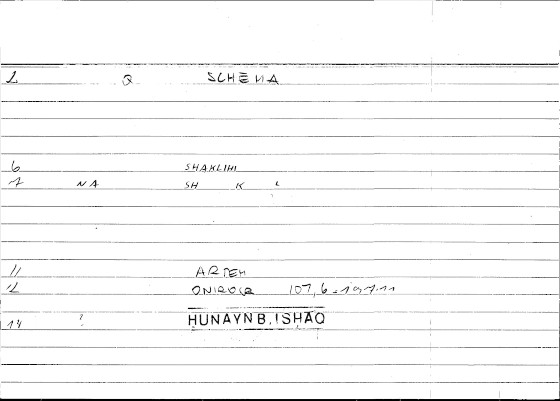 1 Q SCHEMA
6 SHAKLIHI
7 NA SH K L
11 ARTEM
12 ONIROCR 107,6
14 ? HUNAYN B. ISHAQ